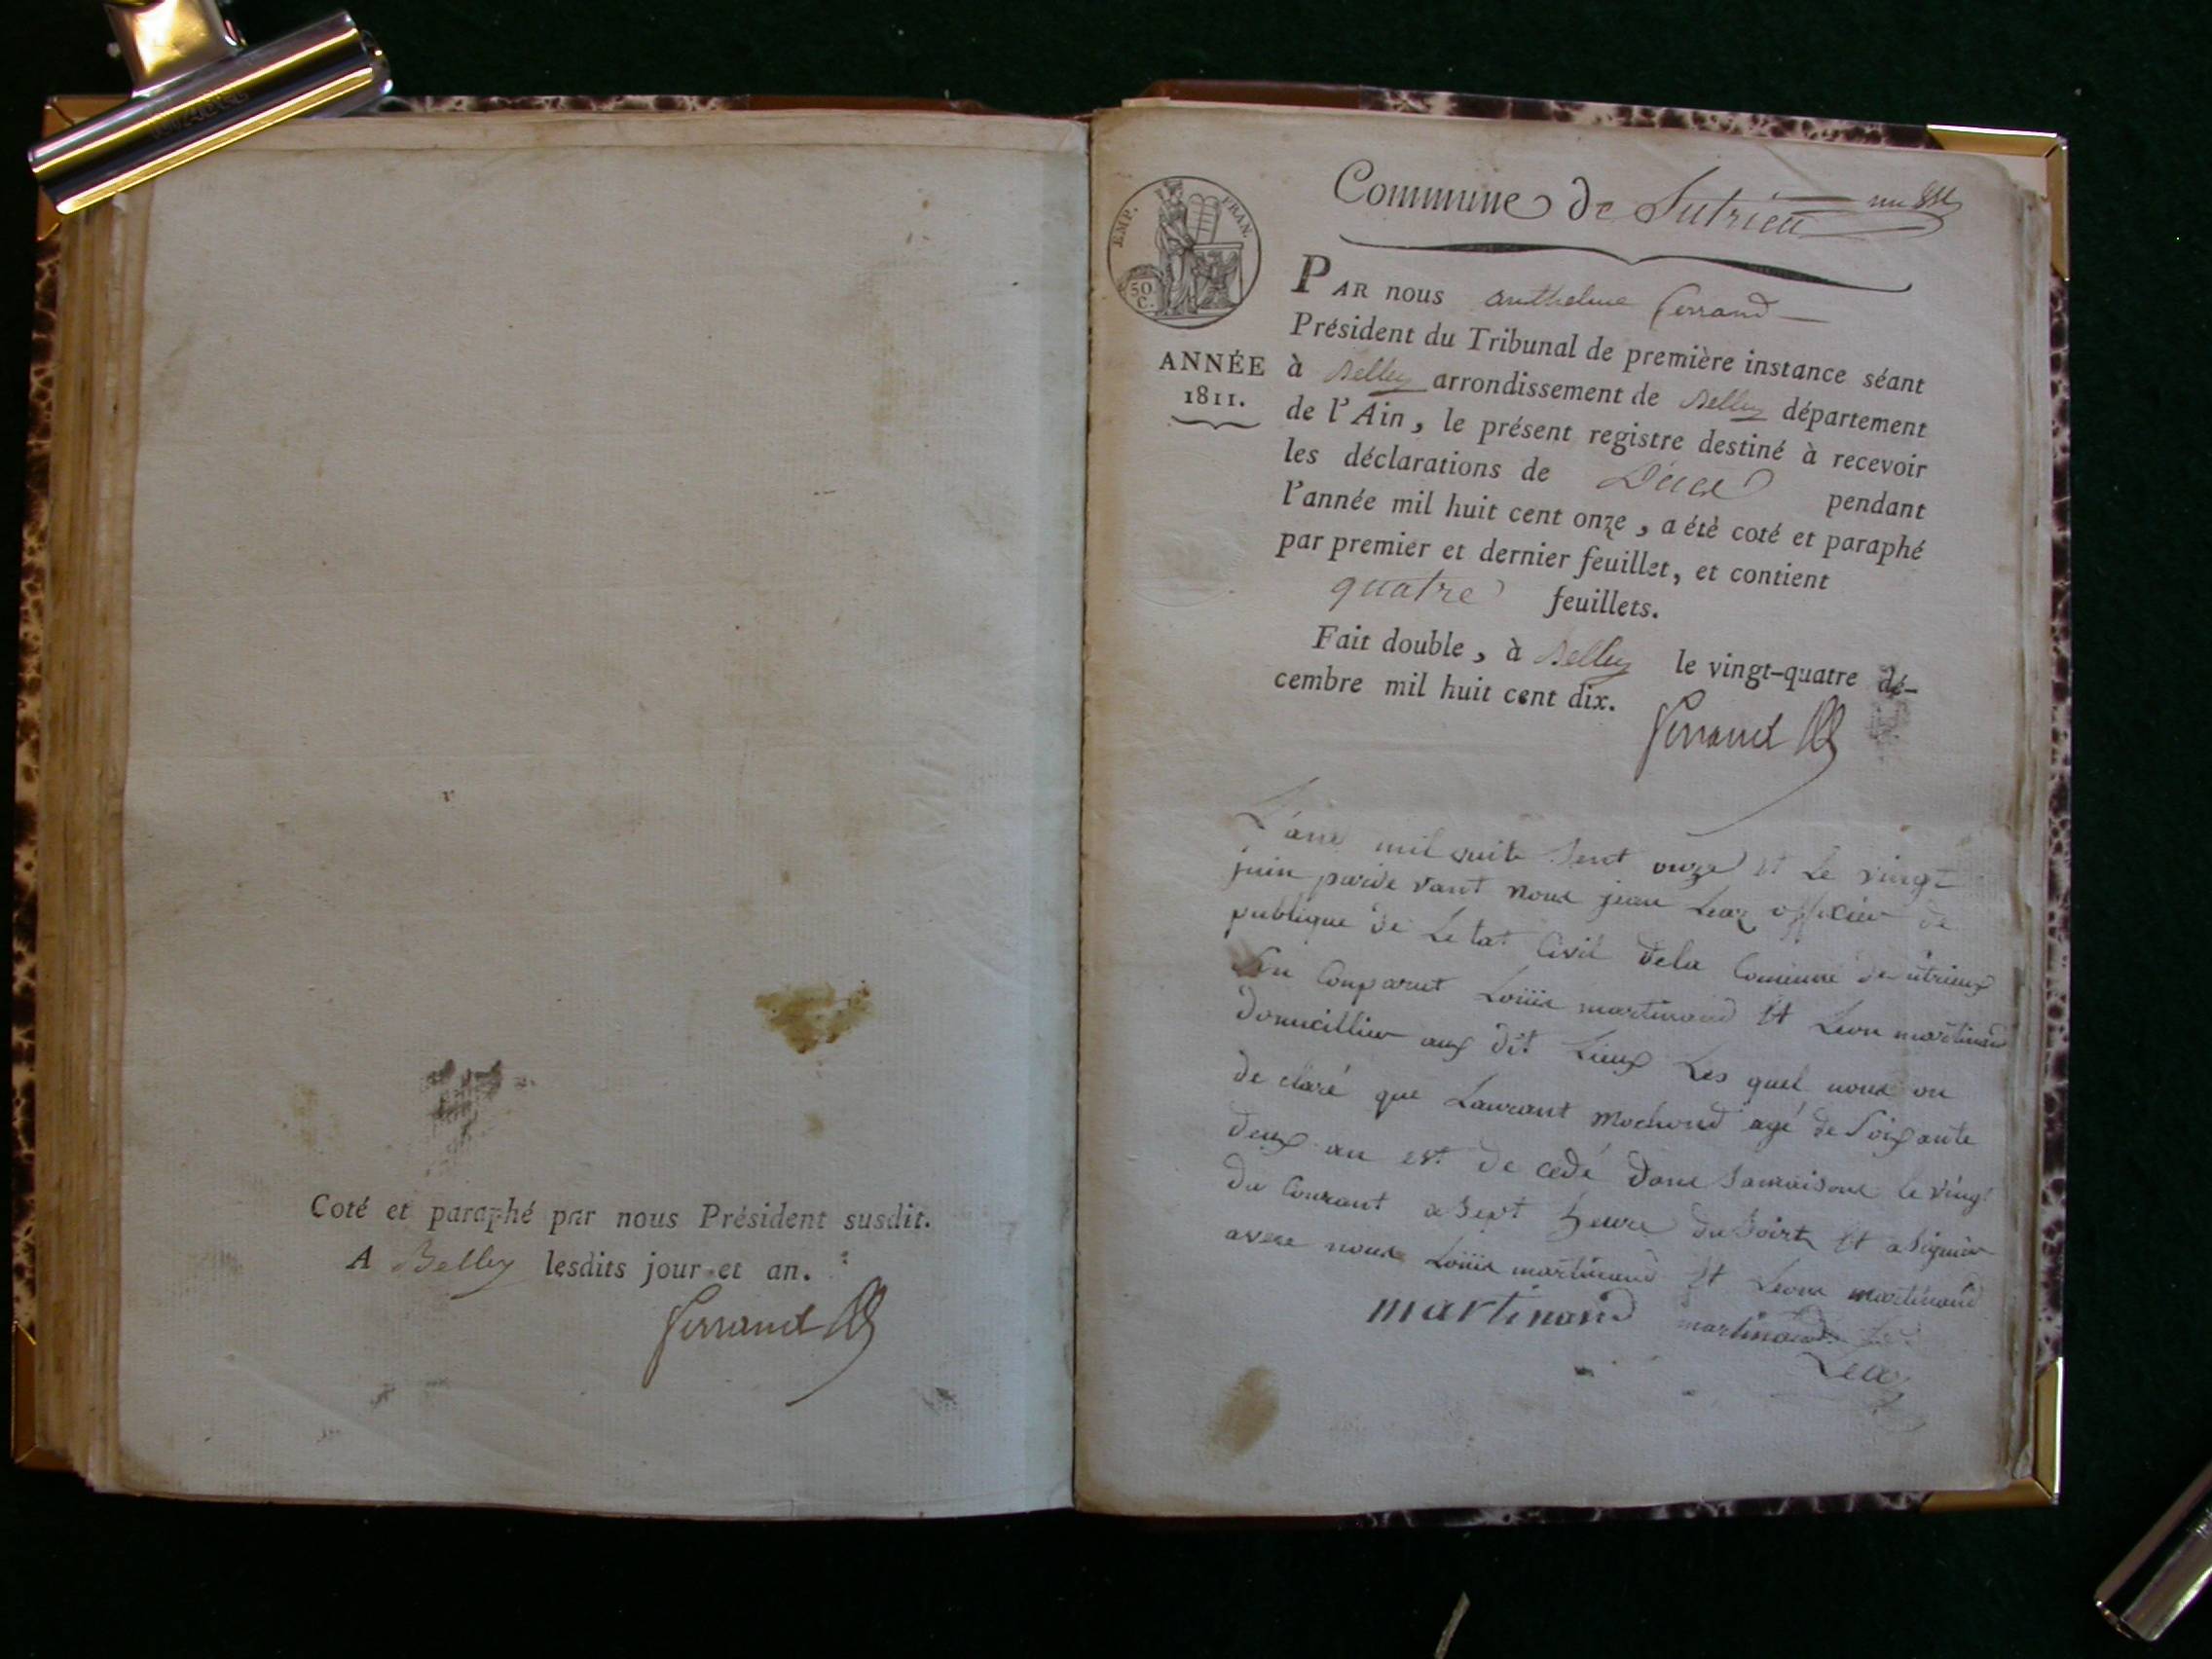 Coté et paraphé par nous Président susdit.
A Belley lesdits jour et an.
Ferrand
Commune de Sutrieu
EMP. FRAN.
50 C.
ANNÉE
1811.
PAR nous anthelme ferrand
Président du Tribunal de première instance séant
à Belley arrondissement de Belley département
de l'Ain, le présent registre destiné à recevoir
les déclarations de Décé pendant
l'année mil huit cent onze, a été coté et paraphé
par premier et dernier feuillet, et contient
quatre feuillets.
Fait double, à Belley le vingt-quatre dé-
cembre mil huit cent dix.
Ferrand
L'ane mil uite sent onze et le vingt
juin parde vant nous jean officier de
publique de Le tat Civil dela Comune de utrieux
Son Comparut Louis martinand et Leon martinand
domicillier aux dit Lieux Les quel nous on
de claré que Laurant Mochond agé de Soixante
deux an est de cedé dans Samaison le vingt
du Courant a Sept heure du Soirt et a Signier
avece nous Louis martinand et Leon martinand
martinand martinand